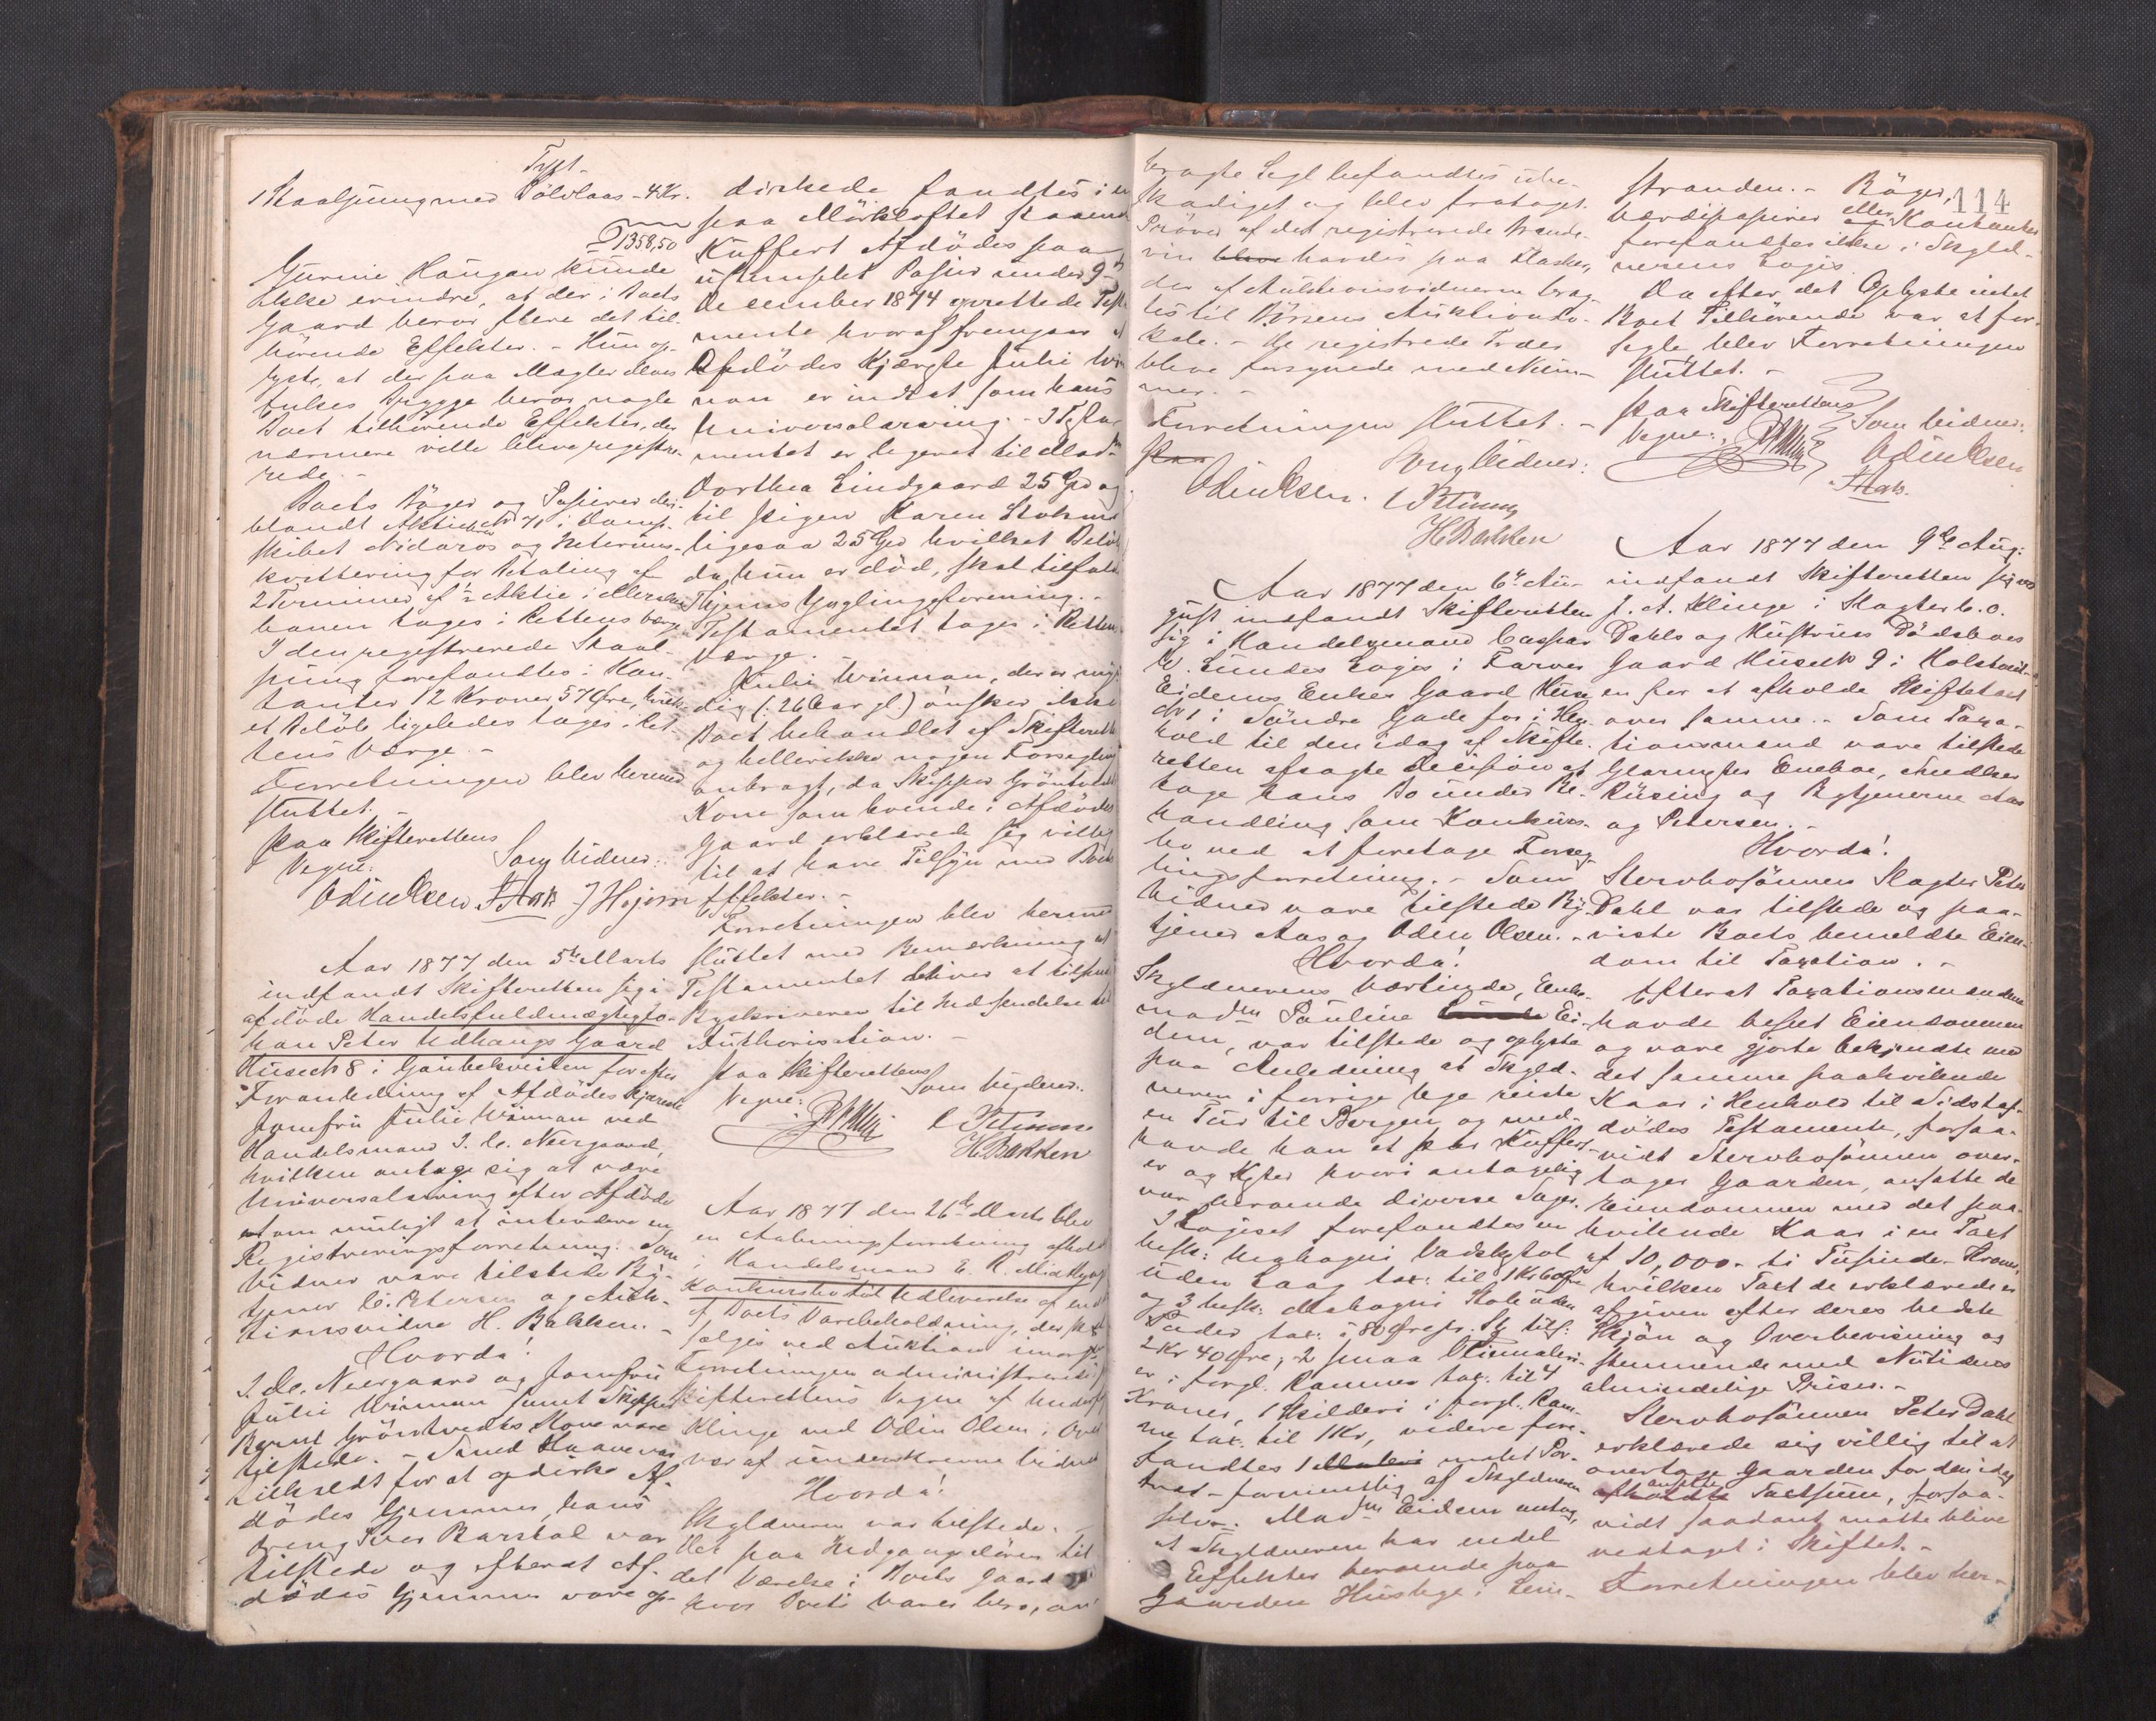 Tpt.
1 Staalpung med Sölvlaas - 4 Kr.
1358,50
Gurine Haugan kunde
ikke erindre, at der i Boets
Gaard beror flere det til-
hörende Effekter. - Hun op-
lyste, at der paa Mægler
Brygge beror nogle
Boet tilhörende Effekter, der
nærmere ville blive registre-
rede. -
Boets Böger og Papirer der-
blandt Aktiebrev No 71 i Damp-
skibet Nidaros og Interims-
kvittering for Betaling af
2 Terminer af ½ Aktie i Meraker-
banen toges i Rettens Værge
I den registrerede Staal-
pung forefandtes i Kon-
tanter 12 Kroner 57 Öre, hvilk-
et Belöb ligeledes toges i Ret-
tens Værge. -
Forretningen blev hermed
sluttet. -
Paa Skifterettens
Vegne: Som Vidner:
Odin Olsen J Hojem
Aar 1877 den 5te Marts
indfandt Skifteretten sig i
afdöde Handelsfuldmægtig Jo-
han Peter Udhaugs Gaard
Huseth 8 i Gaubekveiten for efter
Foranledning af Afdödes Kjæreste
Jomfru Julie Winman ved
Handelsmand J. C. Neergaard,
hvilken antager sig at være
Universalarving efter Afdöde
om muligt at intendere en
Registreringsforretning. Som
Vidner vare tilstede By-
tjener C. Petersen og Auk-
tionsvidne H. Bakken. -
Hvorda!
J. C. Neergaard og Jomfru
Julie Winman samt Skipper
Bernt Gröntvedts Kone vare
tilstede. - Smed Haave var
tilkaldt for at opdirke Af-
dödes Gjemmer, hans
Dreng Iver Barstal var
tilstede og efterat Af-
dödes Gjemmer vare op-
dirkede fandtes i en
paa Mörkloftet staaende
Kuffert Afdödes paa
ustemplet Papir under 9de
December 1874 oprettede Testa-
mente hvoraf fremgaar at
Afdödes Kjæreste Julie Win-
man er indsat som hans
Universalarving. - I Testa-
mentet er legeret til Madm
Dorthea Lindgaard 25 Spd og
til Pigen Karen Stokmo
ligesaa 25 Spd hvilket Belöb
da hun er död, skal tilfalde
Ynglingeforening. -
Testamentet toges i Rettens
Værge. -
Julie Winman, der er myn-
dig (: 26 Aar gl.) önsker ikke
Boet behandlet af Skifteretten
og hellerikke nogen Forsegling
anbragt, da Skipper Gröntvedts
Kone som boende i Afdödes
Gaard erklærede sig villig
til at have Tilsyn med Boets
Effekter. -
Forretningen blev hermed
sluttet med Bemærkning at
Testamentet bliver at tilstille
Byskriveren til Indsendelse til
Authorisation. -
Paa Skifterettens
Vegne: Som Vidner:
C Petersen
H. Bakken
Aar 1877 den 26de Marts blev
en Aabningsforretning afholdt
i Handelsmand E. R.
Konkursbo til Udleverelse af endel
af Boets Varebeholdning, der skal
sælges ved Auktion imorgen
Forretningen administreredes i
Skifterettens Vegne af Underfoged
Klinge ved Odin Olsen i Over-
vær af underskrevne Vidner
Hvorda!
Skyldneren var tilstede. -
Det paa Indgangsdören til
det Værelse i Boets Gaard
hvor Boets Varer bero, an-
bragte Segl befandtes ube-
skadiget og blev frataget.
Pröver af det registrerede Brænde-
vin blev havdes paa Flasker,
der af Auktionsvidnerne brag-
tes til Börsens Auktionslo-
kale. - De registrede Trær
bleve forsynede med Num-
mer. -
Forretningen sluttet. -
Paa
Som Vidner:
Odin Olsen. C Petersen
H Bakken
Aar 1877 den 6te Au-
gust indfandt Skifteretten
sig i Handelsmand Caspar
E. Lundes Logis i Farver
Eidems Enkes Gaard Huse
No 1 i Söndre Gade for i Hen-
hold til den idag af Skifte-
retten afsagte Decision at
tage hans Bo under Be-
handling som Konkurs-
bo ved at foretage Forseg-
lingsforretning. - Som
Vidner vare tilstede By-
tjener Aas og Odin Olsen. -
Hvorda!
Skyldnerens Værtinde, Enke-
madm Pauline Lunde Ei-
dem, var tilstede og oplyste
paa Anledning at Skyld-
neren i forrige Uge reiste
en Tur til Bergen og med-
havde han et par Kuffer-
ter og Kister hvori antagelig
var beroende diverse Sager.
I Logiset forefandtes en
besk: Mahogni Vadskytol
uden Laag tax: til 1 Kr 60 Öre
og 3 besk: Mahogni Stole uden
Sæder tax: à 80 Öre pr. St. tils:
2 Kr 40 Öre; 2 smaa Oliemaleri-
er i forgl. Rammer tax: til 4
Kroner, 1 Skilderi i forgl. Ram-
me tax: til 1 Kr, videre fore-
fandtes 1 Maleri malet Por-
træt - formentlig af Skyldneren
selv. Madm Eidem antog,
at Skyldneren har endel
Effekter beroende paa
Gaarden Huseby i Lein-
114
stranden. - Böger,
Værdipapirer eller Kontanter
forefandtes ikke i Skyld-
nerens Logis.
Da efter det Oplyste intet
Boet Tilhörende var at for-
segle blev Forretningen
sluttet. -
Paa Skifterettens
Vegne: Som Vidner:
Odin Olsen
Aas.
Aar 1877 den 9de Aug:
indfandt Skifteretten sig ved
J. A. Klinge i Slagter C. O.
Dahls og Hustrues Dödsboes
Gaard Huseth 9 i Holstveit-
en for at afholde Skiftetaxt
over samme. - Som Taxa-
tionsmænd vare tilstede
Garmester Eneboe, Snedker
Rüsing og Bytjenerne Aas
og Petersen. -
Hvorda!
Stervbosönnen Slagter Peter
Dahl var tilstede og paa-
viste Boets bemeldte Eien-
dom til Taxation. -
Efterat Taxationsmændene
havde beset Eiendommen
og vare gjorte bekjendte med
det samme paahvilende
Kaar i Henhold til sidstaf-
dödes Testamente, forsaa-
vidt Stervbosönnen over-
tager Gaarden, ansatte de
Eiendommen med det paa-
hvilende Kaar i en Taxt
af 10,000 - ti Tusinde - Kroner,
hvilken Taxt de erklærede er
afgiven efter deres bedste
Skjön og Overbevisning og
stemmende med Nutidens
almindelige Priser. -
Stervbosönnen Peter Dahl
erklærede sig villig til at
overtage Gaarden for den idag
afholdte ansatte Taxtsum, forsaa-
vidt saadant maatte blive
vedtaget i Skiftet. -
Forretningen blev her-